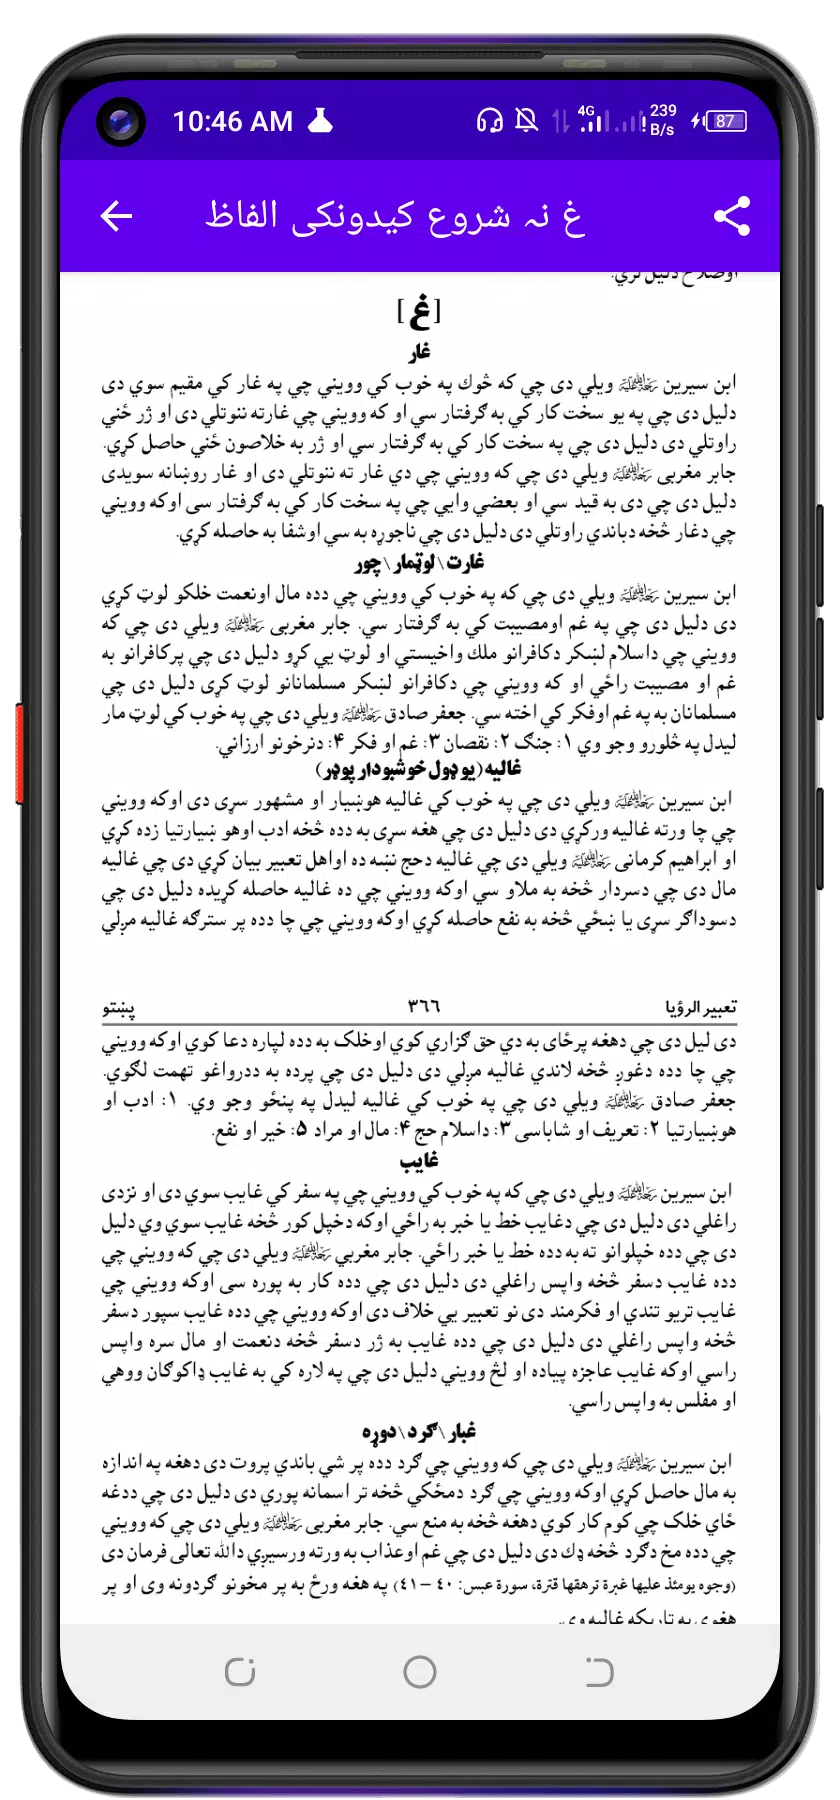 10:46 AM
4G
239 B/s
87
غ نہ شروع کیدونکی الفاظ
[غ]
غار
ابن سیرین رحمة الله عليه ويلي دى چي كه څوك په خوب كي وويني چي په غار كي مقيم سوي دى
دليل دى چي په يو سخت كار كي به ګرفتار سي او كه وويني چي غارته ننوتلي دى او ژر ځني
راوتلي دى دليل دى چي په سخت كار كي به ګرفتار سي او ژر به خلاصون ځني حاصل كړي.
جابر مغربی رحمة الله عليه ويلي دى چي كه وويني چي دي غار ته ننوتلي دى او غار روښانه سويدى
دليل دى چي دى به قيد سي او بعضي وايي چي په سخت كار كي به ګرفتار سى اوكه وويني
چي دغار څخه دباندي راوتلي دى دليل دى چي ناجوړه به سي اوشفا به حاصله كړي.
غارت\لوټمار\چور
ابن سيرين رحمة الله عليه ويلي دى چي كه په خوب كي وويني چي دده مال اونعمت خلكو لوټ كړي
دى دليل دى چي په غم اومصيبت كي به ګرفتار سي. جابر مغربى رحمة الله عليه ويلي دى چي كه
وويني چي داسلام لښكر دكافرانو ملك واخيستي او لوټ يي كړو دليل دى چي پركافرانو به
غم او مصيبت راځي او كه وويني چي دكافرانو لښكر مسلمانانو لوټ كړى دليل دى چي
مسلمانان به په غم اوفكر كي اخته سي. جعفر صادق رحمة الله عليه ويلي دى چي په خوب كي لوټ مار
ليدل په څلورو وجو وي ۱: جنګ ۲: نقصان ۳: غم او فكر ۴: دنرخونو ارزاني.
غاليه(يو ډول خوشبودار پوډر)
ابن سيرين رحمة الله عليه ويلي دى چي په خوب كي غاليه هوښيار او مشهور سړى دى اوكه وويني
چي چا ورته غاليه وركړي دى دليل دى چي هغه سړى به دده څخه ادب اوهو ښيارتيا زده كړي
او ابراهيم كرمانى رحمة الله عليه ويلي دى چي غاليه دحج نښه ده اواهل تعبير بيان كړي دى چي غاليه
مال دى چي دسردار څخه به ملاو سي اوكه وويني چي ده غاليه حاصله كړيده دليل دى چي
دسوداګر سړى يا ښځي څخه به نفع حاصله كړي اوكه وويني چي چا دده پر سترګه غاليه مږلي
تعبير الرؤيا ۳٦٦ پښتو
دى ليل دى چي دهغه پرځاى به دي حق ګزاري كوي اوخلک به دده لپاره دعا كوي اوكه وويني
چي چا دده دغوږ څخه لاندي غاليه مږلي دى دليل دى چي پرده به ددرواغو تهمت لګوي.
جعفر صادق رحمة الله عليه ويلي دى چي په خوب كي غاليه ليدل په پنځو وجو وي. ۱: ادب او
هوښيارتيا ۲: تعريف او شاباسى ۳: داسلام حج ۴: مال او مراد ۵: خير او نفع.
غايب
ابن سيرين رحمة الله عليه ويلي دى چي كه په خوب كي وويني چي په سفر كي غايب سوي دى او نزدى
راغلي دى دليل دى چي دغايب خط يا خبر به راځي اوكه دخپل كور څخه غايب سوي وي دليل
دى چي دده خپلوانو ته به دده خط يا خبر راځي. جابر مغربي رحمة الله عليه ويلي دى چي كه وويني چي
دده غايب دسفر څخه واپس راغلي دى دليل دى چي دده كار به پوره سى اوكه وويني چي
غايب تريو تندي او فكرمند دى نو تعبير يي خلاف دى اوكه وويني چي دده غايب سپور دسفر
څخه واپس راغلي دى دليل دى چي دده غايب به ژر دسفر څخه دنعمت او مال سره واپس
راسي اوكه غايب عاجزه پياده او لڅ وويني دليل دى چي په لاره كي به غايب ډاكوګان ووهي
او مفلس به واپس راسي.
غبار\ګرد\دوړه
ابن سيرين رحمة الله عليه ويلي دى چي كه وويني چي ګرد دده پر شي باندي پروت دى دهغه په اندازه
به مال حاصل كړي اوكه وويني چي ګرد دمځكي څخه تر اسمانه پوري دى دليل دى چي ددغه
ځاي خلک چي كوم كار كوي دهغه څخه به منع سي. جابر مغربى رحمة الله عليه ويلي دى چي كه وويني
چي دده مخ دګرد څخه ډك دى دليل دى چي غم اوعذاب به ورته ورسيږي دالله تعالى فرمان دى
(وجوه يومئذ عليها غبرة ترهقها قترة، سورة عبس: ۴۰ –۴۱) په هغه ورځ به پر مخونو ګردونه وى او پر